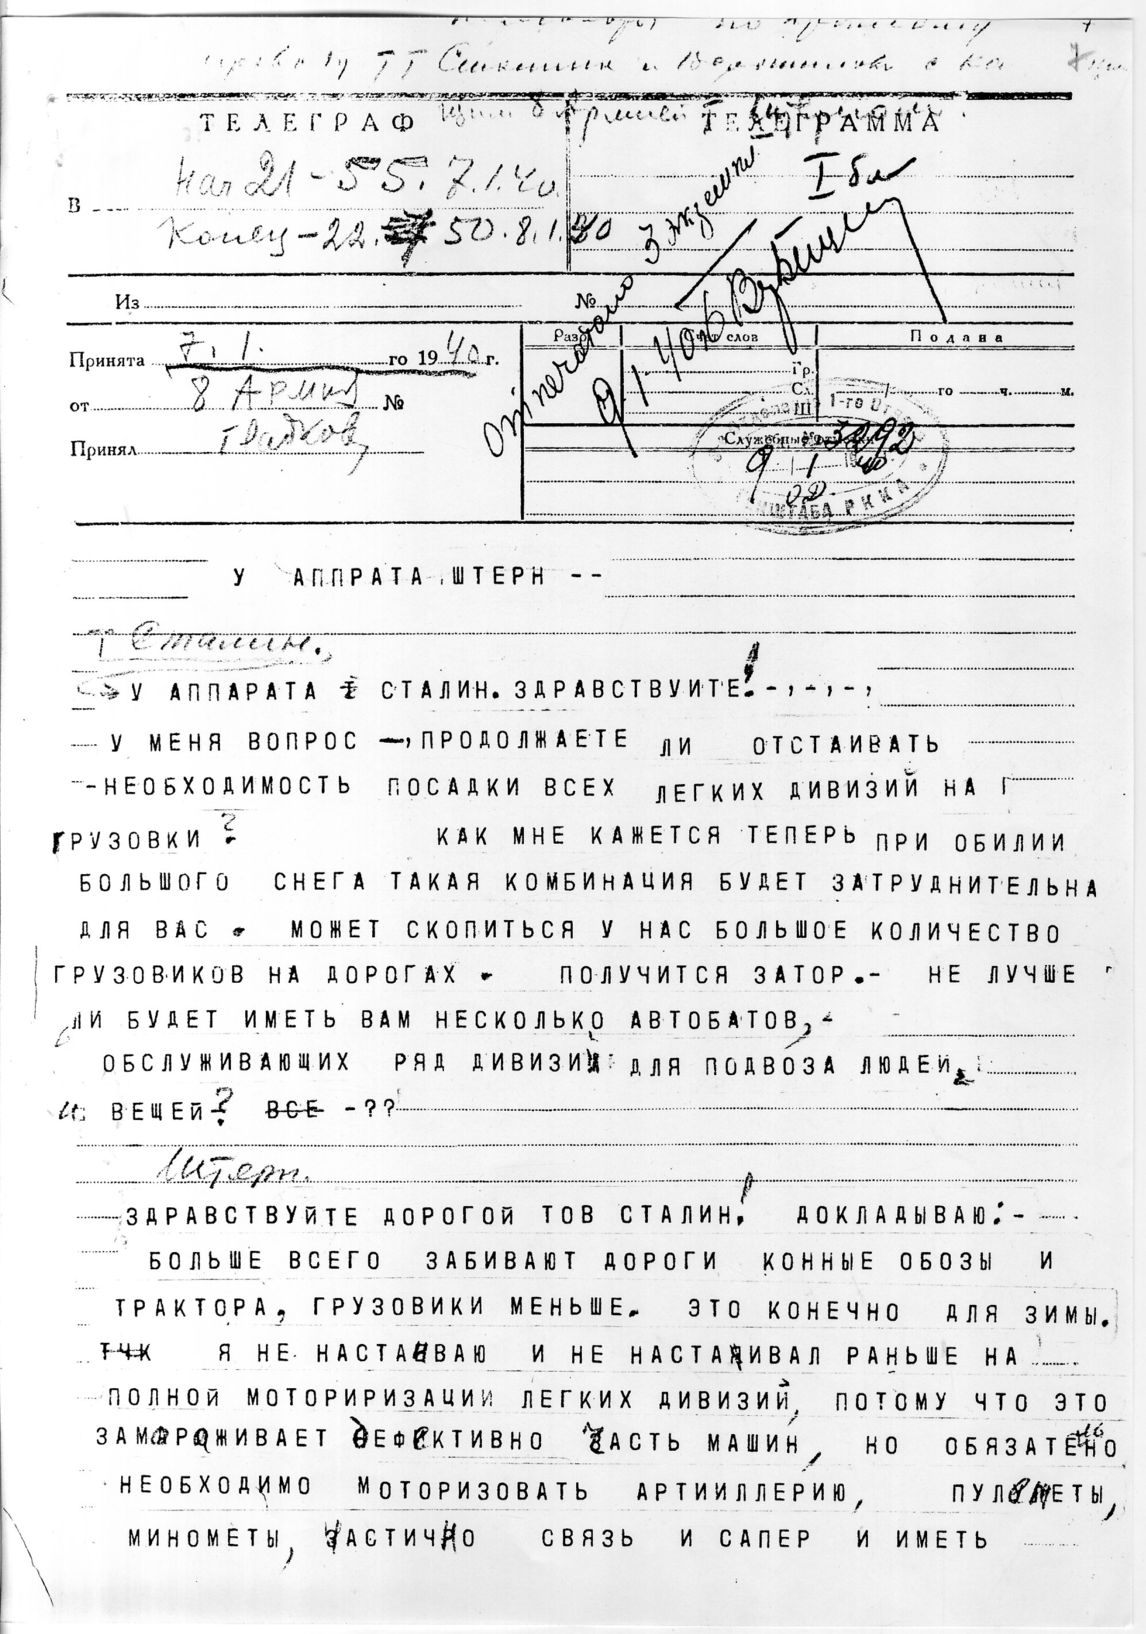 по прямому
проводу ТТ Сталина и Ворошилова с
ТЕЛЕГРАФ
ТЕЛЕГРАММА
В
Нач 21-55. 7.1.40
Конец - 22. 50. 8.1.40
I бл
Отпечатано 3 экземпл
9.1.40
Из
№
Принята 7.1. го 1940 г.
от 8 Армия №
Принял Гладков
Разр.
Счет слов
Подана
Гр.
Сл.
Ш
го ч. м.
Служебные
1-го
9 1 40
ГЕНШТАБА РККА
У АППРАТА ШТЕРН --
т Сталин.
У АППАРАТА СТАЛИН. ЗДРАВСТВУИТЕ! -,-,-,
У МЕНЯ ВОПРОС -, ПРОДОЛЖАЕТЕ ЛИ ОТСТАИВАТЬ
-НЕОБХОДИМОСТЬ ПОСАДКИ ВСЕХ ЛЕГКИХ ДИВИЗИЙ НА Г
ГРУЗОВКИ ? КАК МНЕ КАЖЕТСЯ ТЕПЕРЬ ПРИ ОБИЛИИ
БОЛЬШОГО СНЕГА ТАКАЯ КОМБИНАЦИЯ БУДЕТ ЗАТРУДНИТЕЛЬНА
ДЛЯ ВАС . МОЖЕТ СКОПИТЬСЯ У НАС БОЛЬШОЕ КОЛИЧЕСТВО
ГРУЗОВИКОВ НА ДОРОГАХ - ПОЛУЧИТСЯ ЗАТОР.- НЕ ЛУЧШЕ
ЛИ БУДЕТ ИМЕТЬ ВАМ НЕСКОЛЬКО АВТОБАТОВ,-
ОБСЛУЖИВАЮЩИХ РЯД ДИВИЗИЙ ДЛЯ ПОДВОЗА ЛЮДЕЙ
и ВЕЩЕЙ? ВСЕ -??
Штерн.
ЗДРАВСТВУЙТЕ ДОРОГОЙ ТОВ СТАЛИН! ДОКЛАДЫВАЮ:-
БОЛЬШЕ ВСЕГО ЗАБИВАЮТ ДОРОГИ КОННЫЕ ОБОЗЫ И
ТРАКТОРА, ГРУЗОВИКИ МЕНЬШЕ. ЭТО КОНЕЧНО ДЛЯ ЗИМЫ.
ТЧК Я НЕ НАСТАИВАЮ И НЕ НАСТАИВАЛ РАНЬШЕ НА
ПОЛНОЙ МОТОРИРИЗАЦИИ ЛЕГКИХ ДИВИЗИЙ, ПОТОМУ ЧТО ЭТО
ЗАМОРАЖИВАЕТ ДЕФЕКТИВНО ЧАСТЬ МАШИН, НО ОБЯЗАТЕЛЬНО
НЕОБХОДИМО МОТОРИЗОВАТЬ АРТИИЛЛЕРИЮ, ПУЛЕМЕТЫ,
МИНОМЕТЫ, ЧАСТИЧНО СВЯЗЬ И САПЕР И ИМЕТЬ